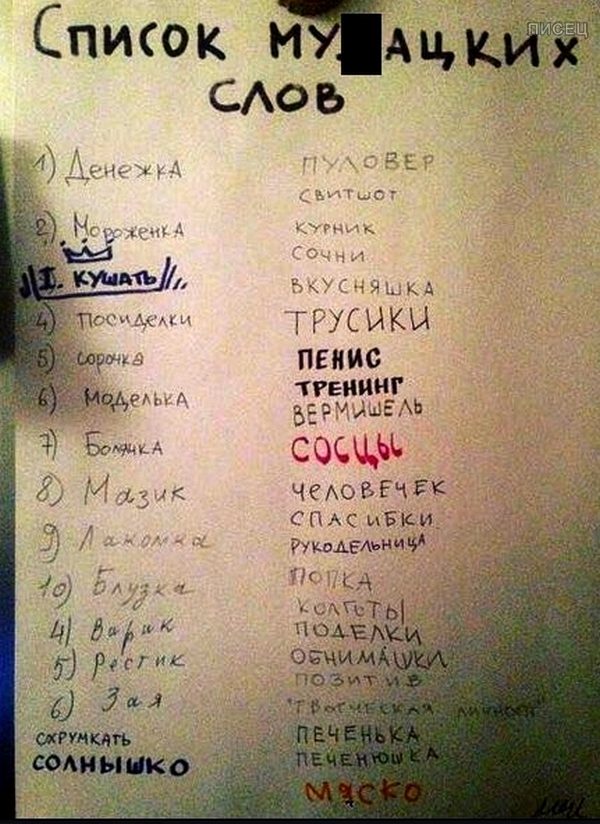 ПИСЕЦ
Список му ацких
слов
1) Денежка
2) Мороженка
I. кушать
4) Посиделки
5) сорочка
6) Моделька
7) Болячка
8) Мазик
9) Лакомка
10) Блузка
4) Варик
5) Рестик
6) Зая
схрумкать
солнышко
пуловер
свитшот
курник
сочни
вкусняшка
трусики
пенис
тренинг
вермишель
сосцы
человечек
спасибки
рукодельница
попка
колготы
поделки
обнимашки
позитив
"творческая личность"
печенька
печенюшка
мяско